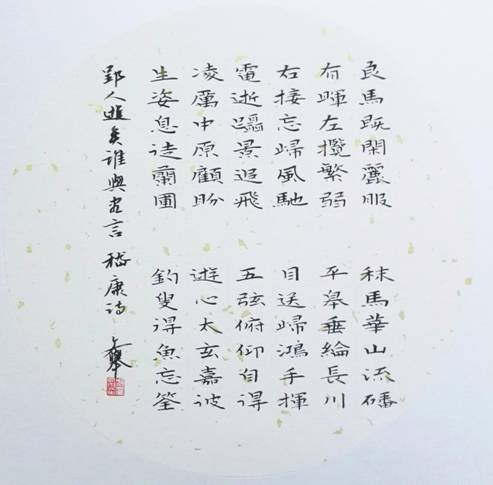 良馬既閑灑服
有暉左攬繁弱
右接忘歸風馳
電逝躡景追飛
凌厲中原顧盼
生姿息徒蘭圃
秣馬華山流磻
平皋垂綸長川
目送歸鴻手揮
五弦俯仰自得
遊心太玄嘉彼
釣叟得魚忘筌
郢人逝矣誰與盡言 嵇康詩